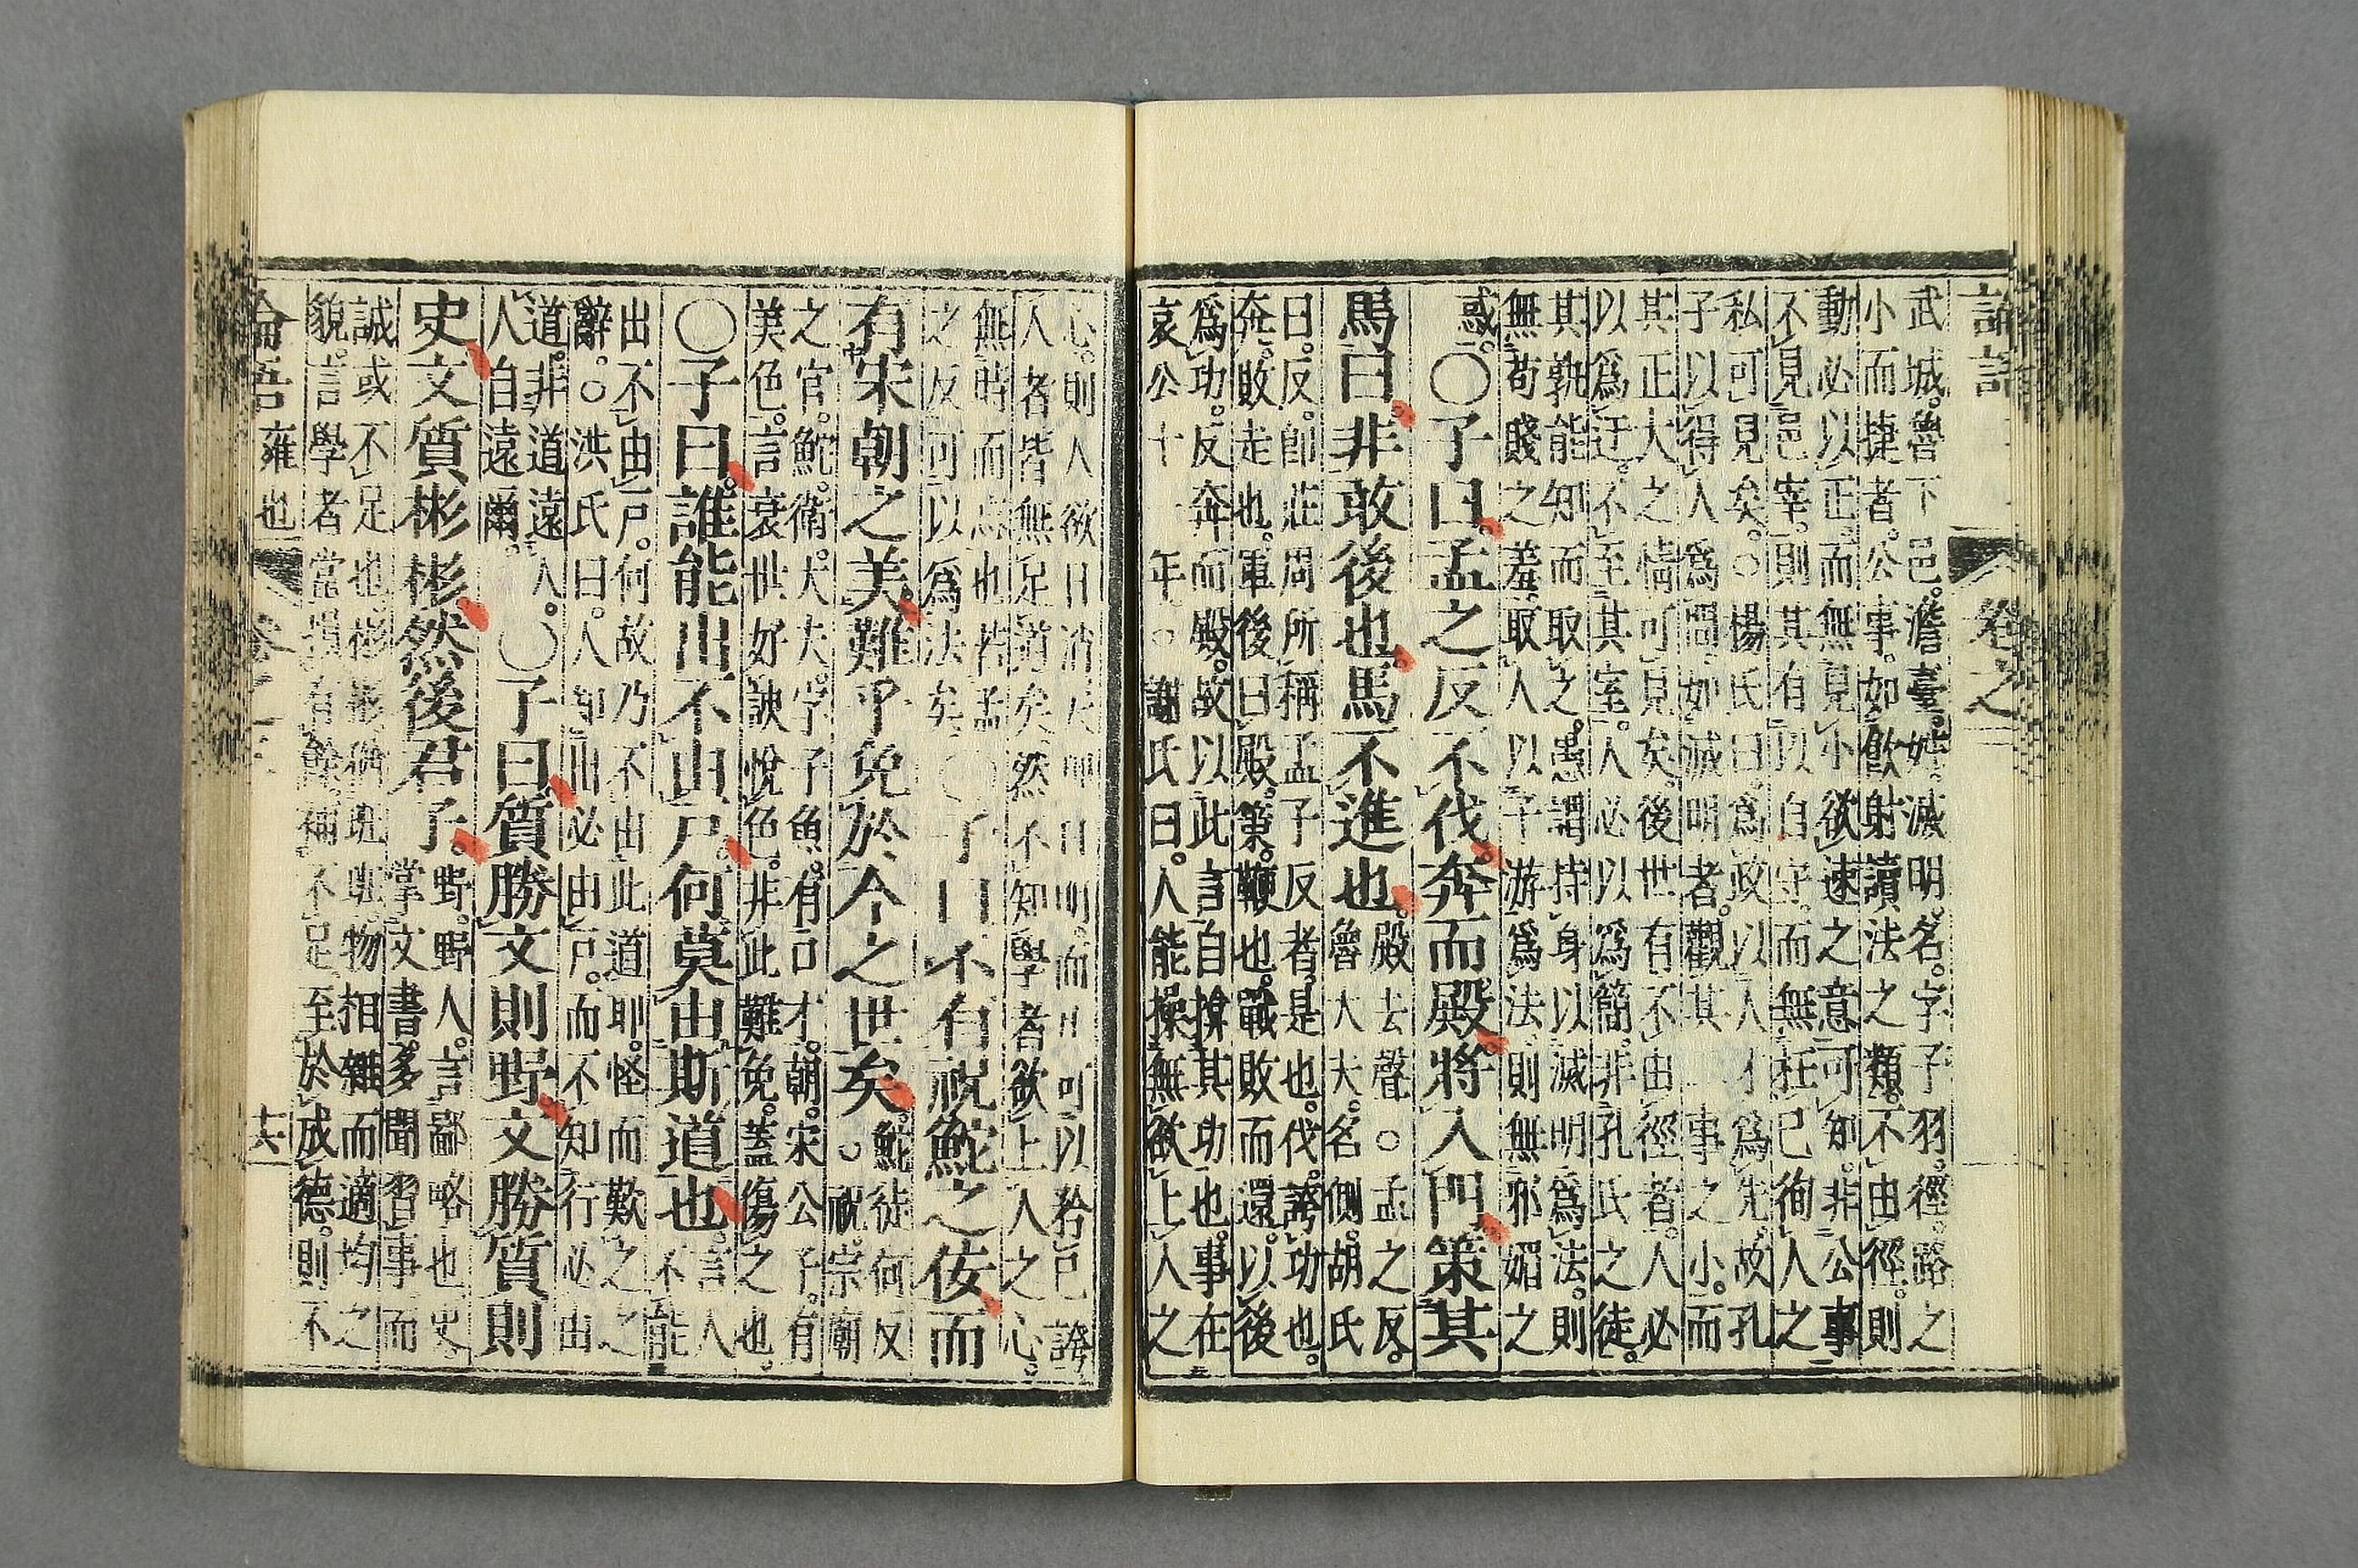 論語
卷之
武城。魯下邑。澹臺。姓。滅明名。字子羽。徑。路之
小而捷者。公事。如飲射讀法之類。不由徑。則
動必以正。而無見小欲速之意可知。非公事
不見邑宰。則其有以自守。而無枉己徇人之
私可見矣。○楊氏曰。爲政以人才爲先。故孔
子以得人爲問。如滅明者。觀其二事之小。而
其正大之情可見矣。後世有不由徑者。人必
以爲迂。不至其室。人必以爲簡。非孔氏之徒。
其孰能知而取之。愚謂持身以滅明爲法。則
無苟賤之羞。取人以子游爲法。則無邪媚之
惑。
○子曰。孟之反不伐。奔而殿。將入門。策其
馬曰。非敢後也。馬不進也。
殿去聲。○孟之反。
魯大夫。名側。胡氏
曰。反。卽莊周所稱孟子反者。是也。伐。誇功也。
奔。敗走也。軍後曰殿。策。鞭也。戰敗而還。以後
爲功。反奔而殿。故以此言自揜其功也。事在
哀公十一年。○謝氏曰。人能操無欲上人之
心。則人欲日消天理日明。而凡可以矜己誇
人者皆無足道矣。然不知學者欲上人之心。
無時而忘也。若孟
之反可以爲法矣
○子曰不有祝鮀之佞。而
有宋朝之美。難乎免於今之世矣。
○鮀。徒何反
祝。宗廟
之官。鮀。衛大夫。字子魚。有口才。朝。宋公子。有
美色。言衰世好諛悅色。非此難免。蓋傷之也。
○子曰。誰能出不由戶。何莫由斯道也。
言人
不能
出不由戶。何故乃不由此道耶。怪而歎之之
辭。○洪氏曰。人知出必由戶。而不知行必由
道。非道遠人。
人自遠爾。
○子曰。質勝文則野。文勝質則
史。文質彬彬。然後君子。
野。野人。言鄙略也。史。
掌文書。多聞習事而
誠或不足也。彬彬猶班班。物相雜而適均之
貌。言學者當損有餘補不足。至於成德。則不
論吾雍也
卷之三
十六